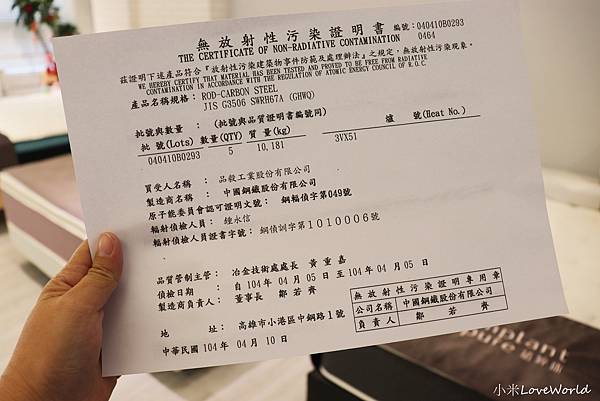 無放射性污染證明書
編號：040410B0293
0464
THE CERTIFICATE OF NON-RADIATIVE CONTAMINATION
茲證明下述產品符合『放射性污染建築物事件防範及處理辦法』之規定，無放射性污染現象。
WE HEREBY CERTIFY THAT MATERIAL HAS BEEN TESTED AND PROVED TO BE FREE FROM RADIATIVE
CONTAMINATION IN ACCORDANCE WITH THE REGULATION OF ATOMIC ENERGY COUNCIL OF R.O.C.
產品名稱規格： ROD-CARBON STEEL
JIS G3506 SWRH67A (GHWQ)
批號與數量 ： (批號與品質證明書編號同)
批 號(Lots) 數量(QTY) 質 量(kg) 爐 號(Heat No.)
040410B0293 5 10,181 3VX51
買受人名稱 ： 品毅工業股份有限公司
製造商名稱 ： 中國鋼鐵股份有限公司
原子能委員會認可證明文號： 鋼輻偵字第049號
輻射偵檢人員 ： 鍾永信
輻射偵檢人員證書字號： 鋼偵訓字第1010006號
品質管制主管： 冶金技術處處長 黃重嘉
偵檢日期 ： 自 104年 04月 05日 至 104年 04月 05日
製造商負責人： 董事長 鄒若齊
無放射性污染證明專用章
公司名稱 中國鋼鐵股份有限公司
負責人 鄒 若 齊
地 址： 高雄市小港區中鋼路1號
中華民國 104年 04月 10日
小米LoveWorld